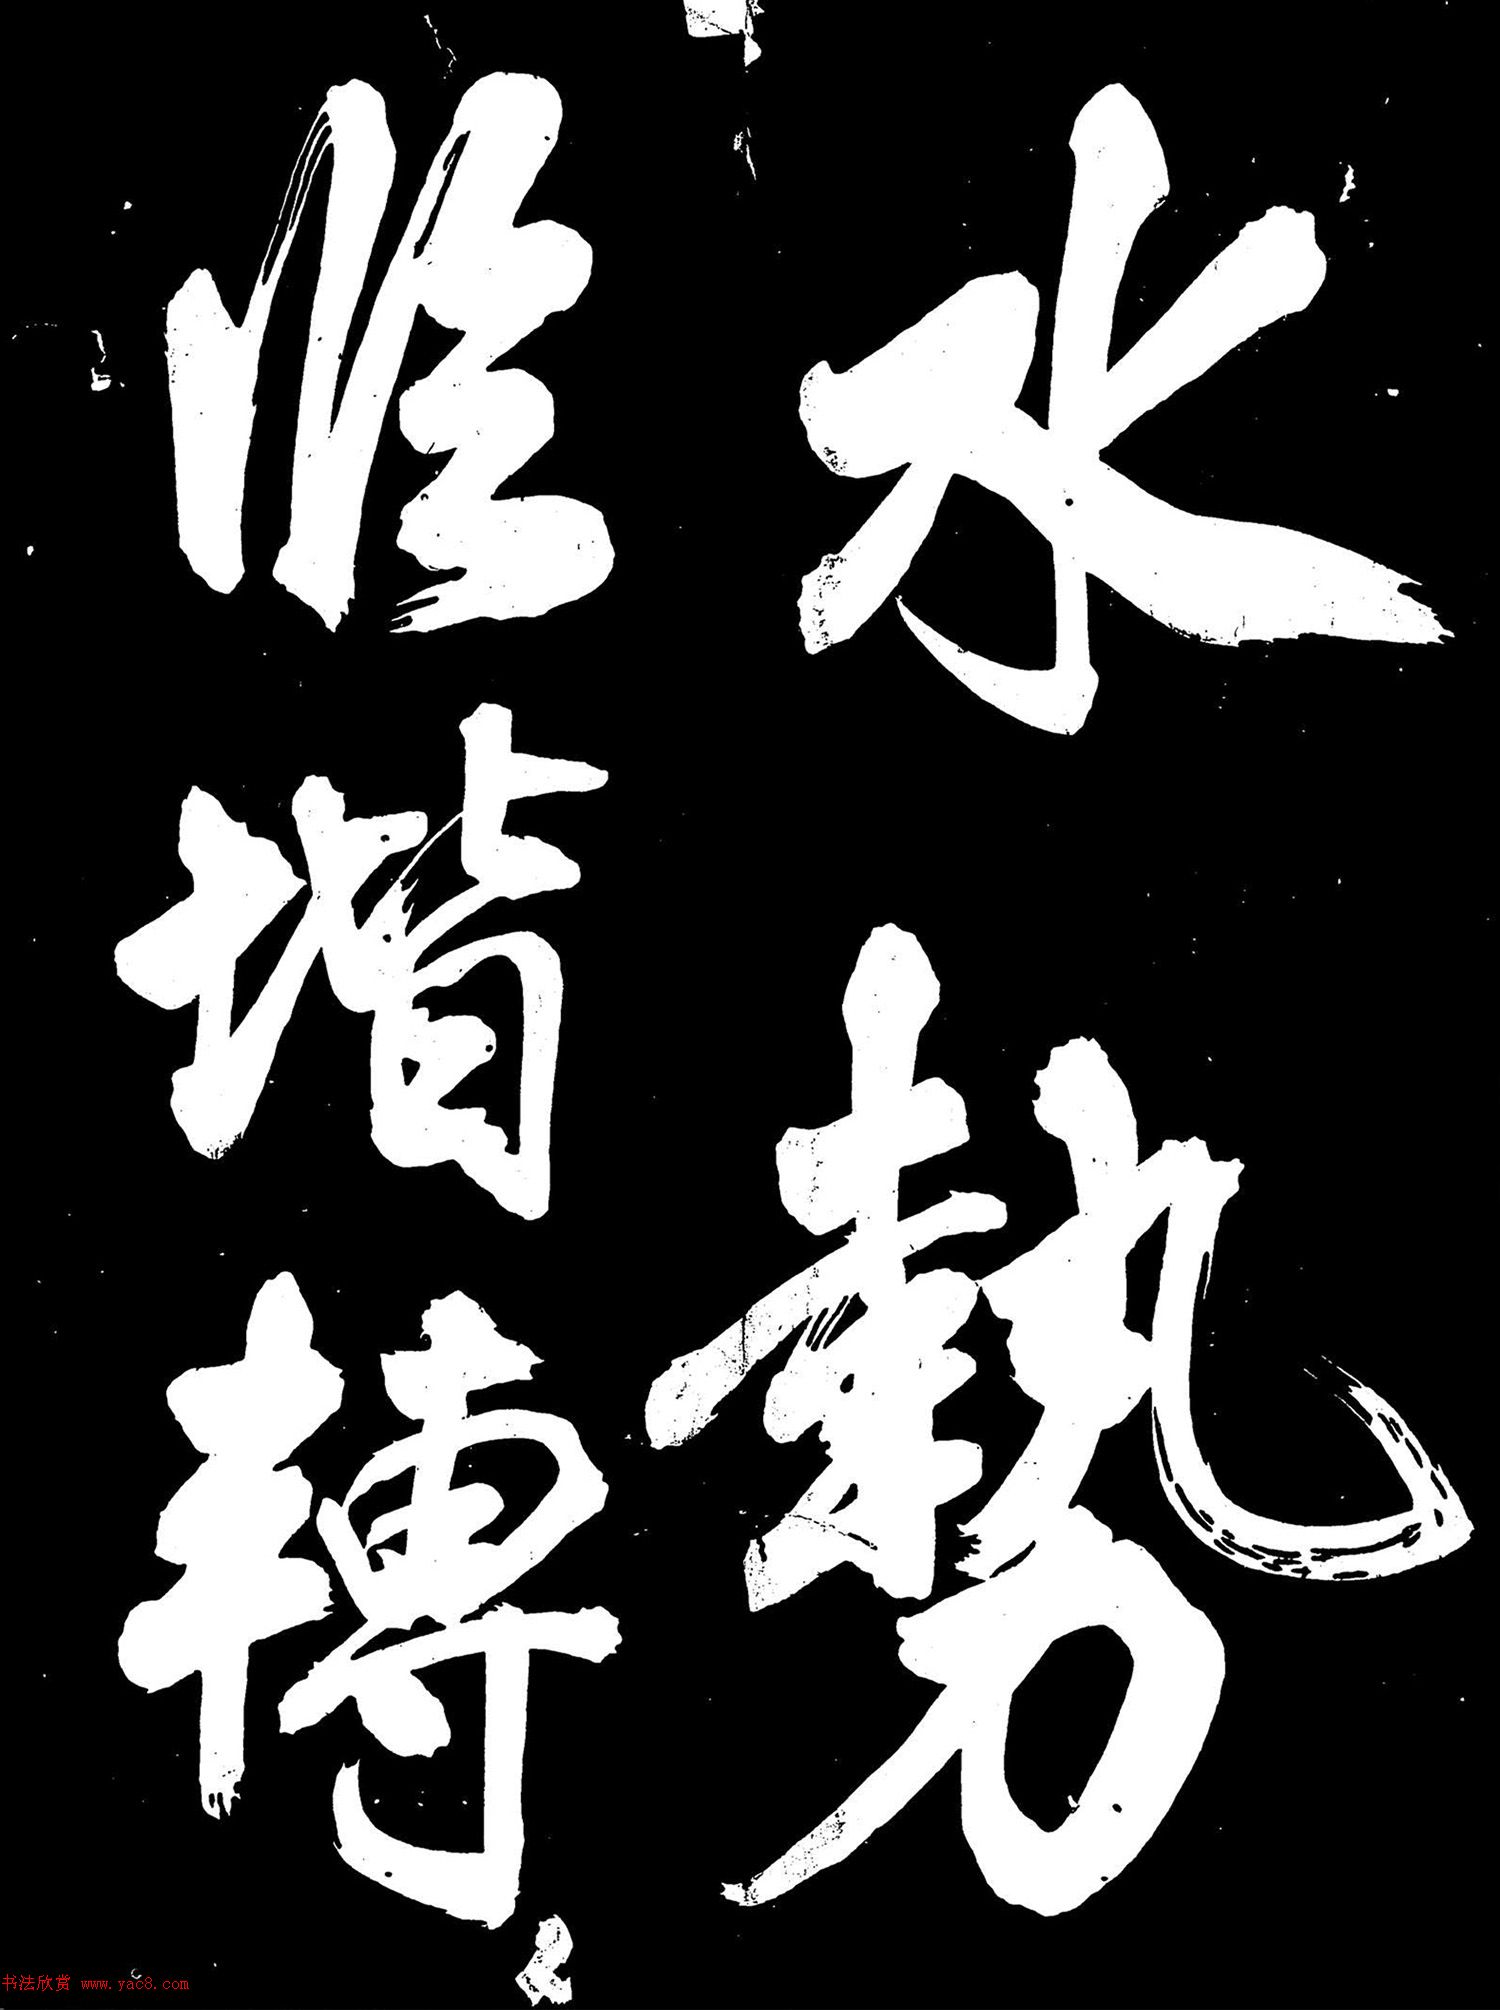 水勢
臨堦轉
书法欣赏 www.yac8.com